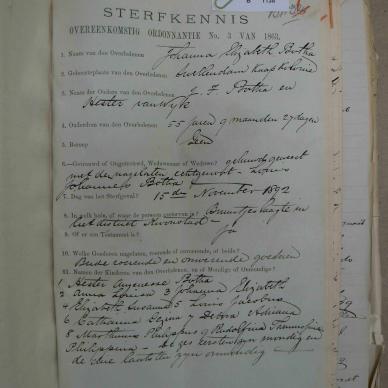 B 1138
STERFKENNIS
OVEREENKOMSTIG ORDONNANTIE No. 3 VAN 1863.
1. Naam van den Overledenen Johanna Elizabeth Botha
2. Geboorteplaats van den Overledenen Swellendam Kaapkolonie
3. Naam der Ouders van den Overledenen J. F. Botha en
Hester van Wyk
4. Ouderdom van den Overledenen 55 jaren 9 maanden 27 dagen
5. Beroep Geen
6. Getrouwd of Ongetrouwd, Weduwnaar of Weduwe? gehuwd geweest
met den nagelaten echtgenoot - Louis
Johannes Botha
7. Dag van het Sterfgeval? 15de November 1892
8. In welk huis, of waar de persoon overleden is? in
het district Kroonstad
9. Of er een Testament is? Ja
10. Welke Goederen nagelaten, roerende of onroerende, of beide?
Beide roerende en onroerende goederen
11. Namen der Kinderen van den Overledenen, en of Mondig of Onmondig?
1 Hester Botha
2 Anna 3 Johanna Elizabeth
4 Elizabeth Susanna 5 Louis Jacobus
6 Catharina 7 Debora Adriana
8 Marthinus Philippus 9 Rudolfina
Philippina - de zes eersten zyn mondig en
de drie laatsten zyn onmondig